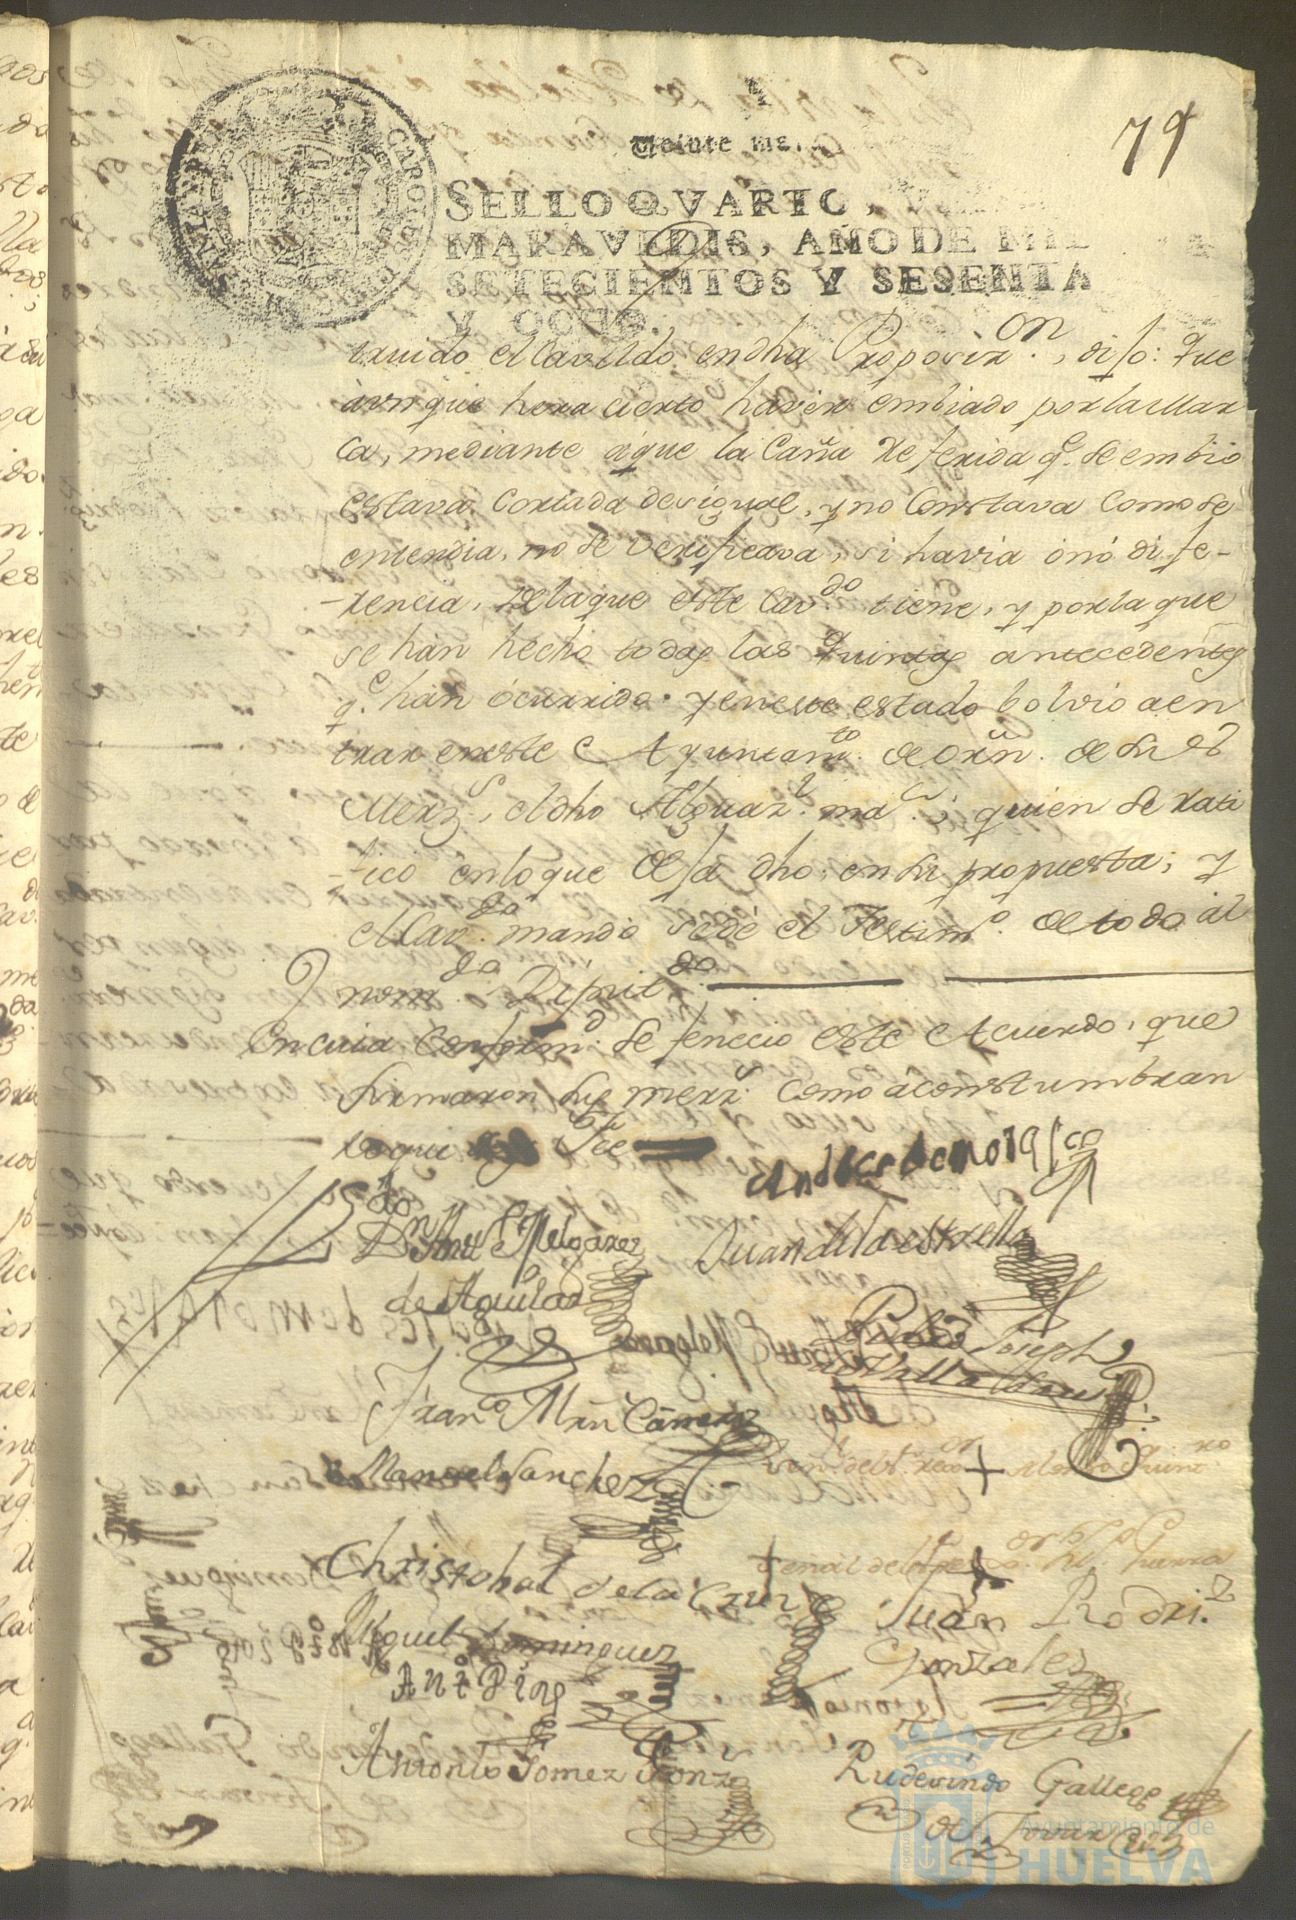 79
Veinte ms.
SELLO QVARTO,
MARAVEDIS, AÑO DE MIL
SETECIENTOS Y SESENTA
Y OCHO.
truido el Cavildo en dha Proposizon., dijo: Que
aunque hera cierto haver embiado por la Mar
ca, mediante a que la Caña Referida qe. se embio
estava Cortada desigual, y no Constava Como se
entendia, no se verificava, si havia ó no dife-
-rencia, de la que este Cavdo. tiene, y por la que
se hán hecho todas las Quintas antecedentes
qe. hán ócurrido. y en este estado bolvio a en
trar en este Ayuntamto. de orn. de sus
Merzs., el dho Alguazl. mar., quien se rati
ficó en lo que deja dho, en su propuesta; y
el Cavdo. mandó se dé el Testimo. de todo al
nomdo. Diputdo.
En cuia Conformd. se fenecio este Acuerdo, que
firmaron sus merzs. como aconstumbran
doy fee
Andres de Morales
Dn Anto Melgarez
de Aguilar
Juan de la Estrella
Pablo Joseph
Valladares
Franco Mrn Camero
Manuel Sanchez
+ Alonso Quintro
Christobal de la Cruz
señal de
Juan Rodriz
Gonzales
Miguel Dominguez
Antonio Gomez Gonzs
Rudesindo Gallego
Ayuntamiento de
HUELVA